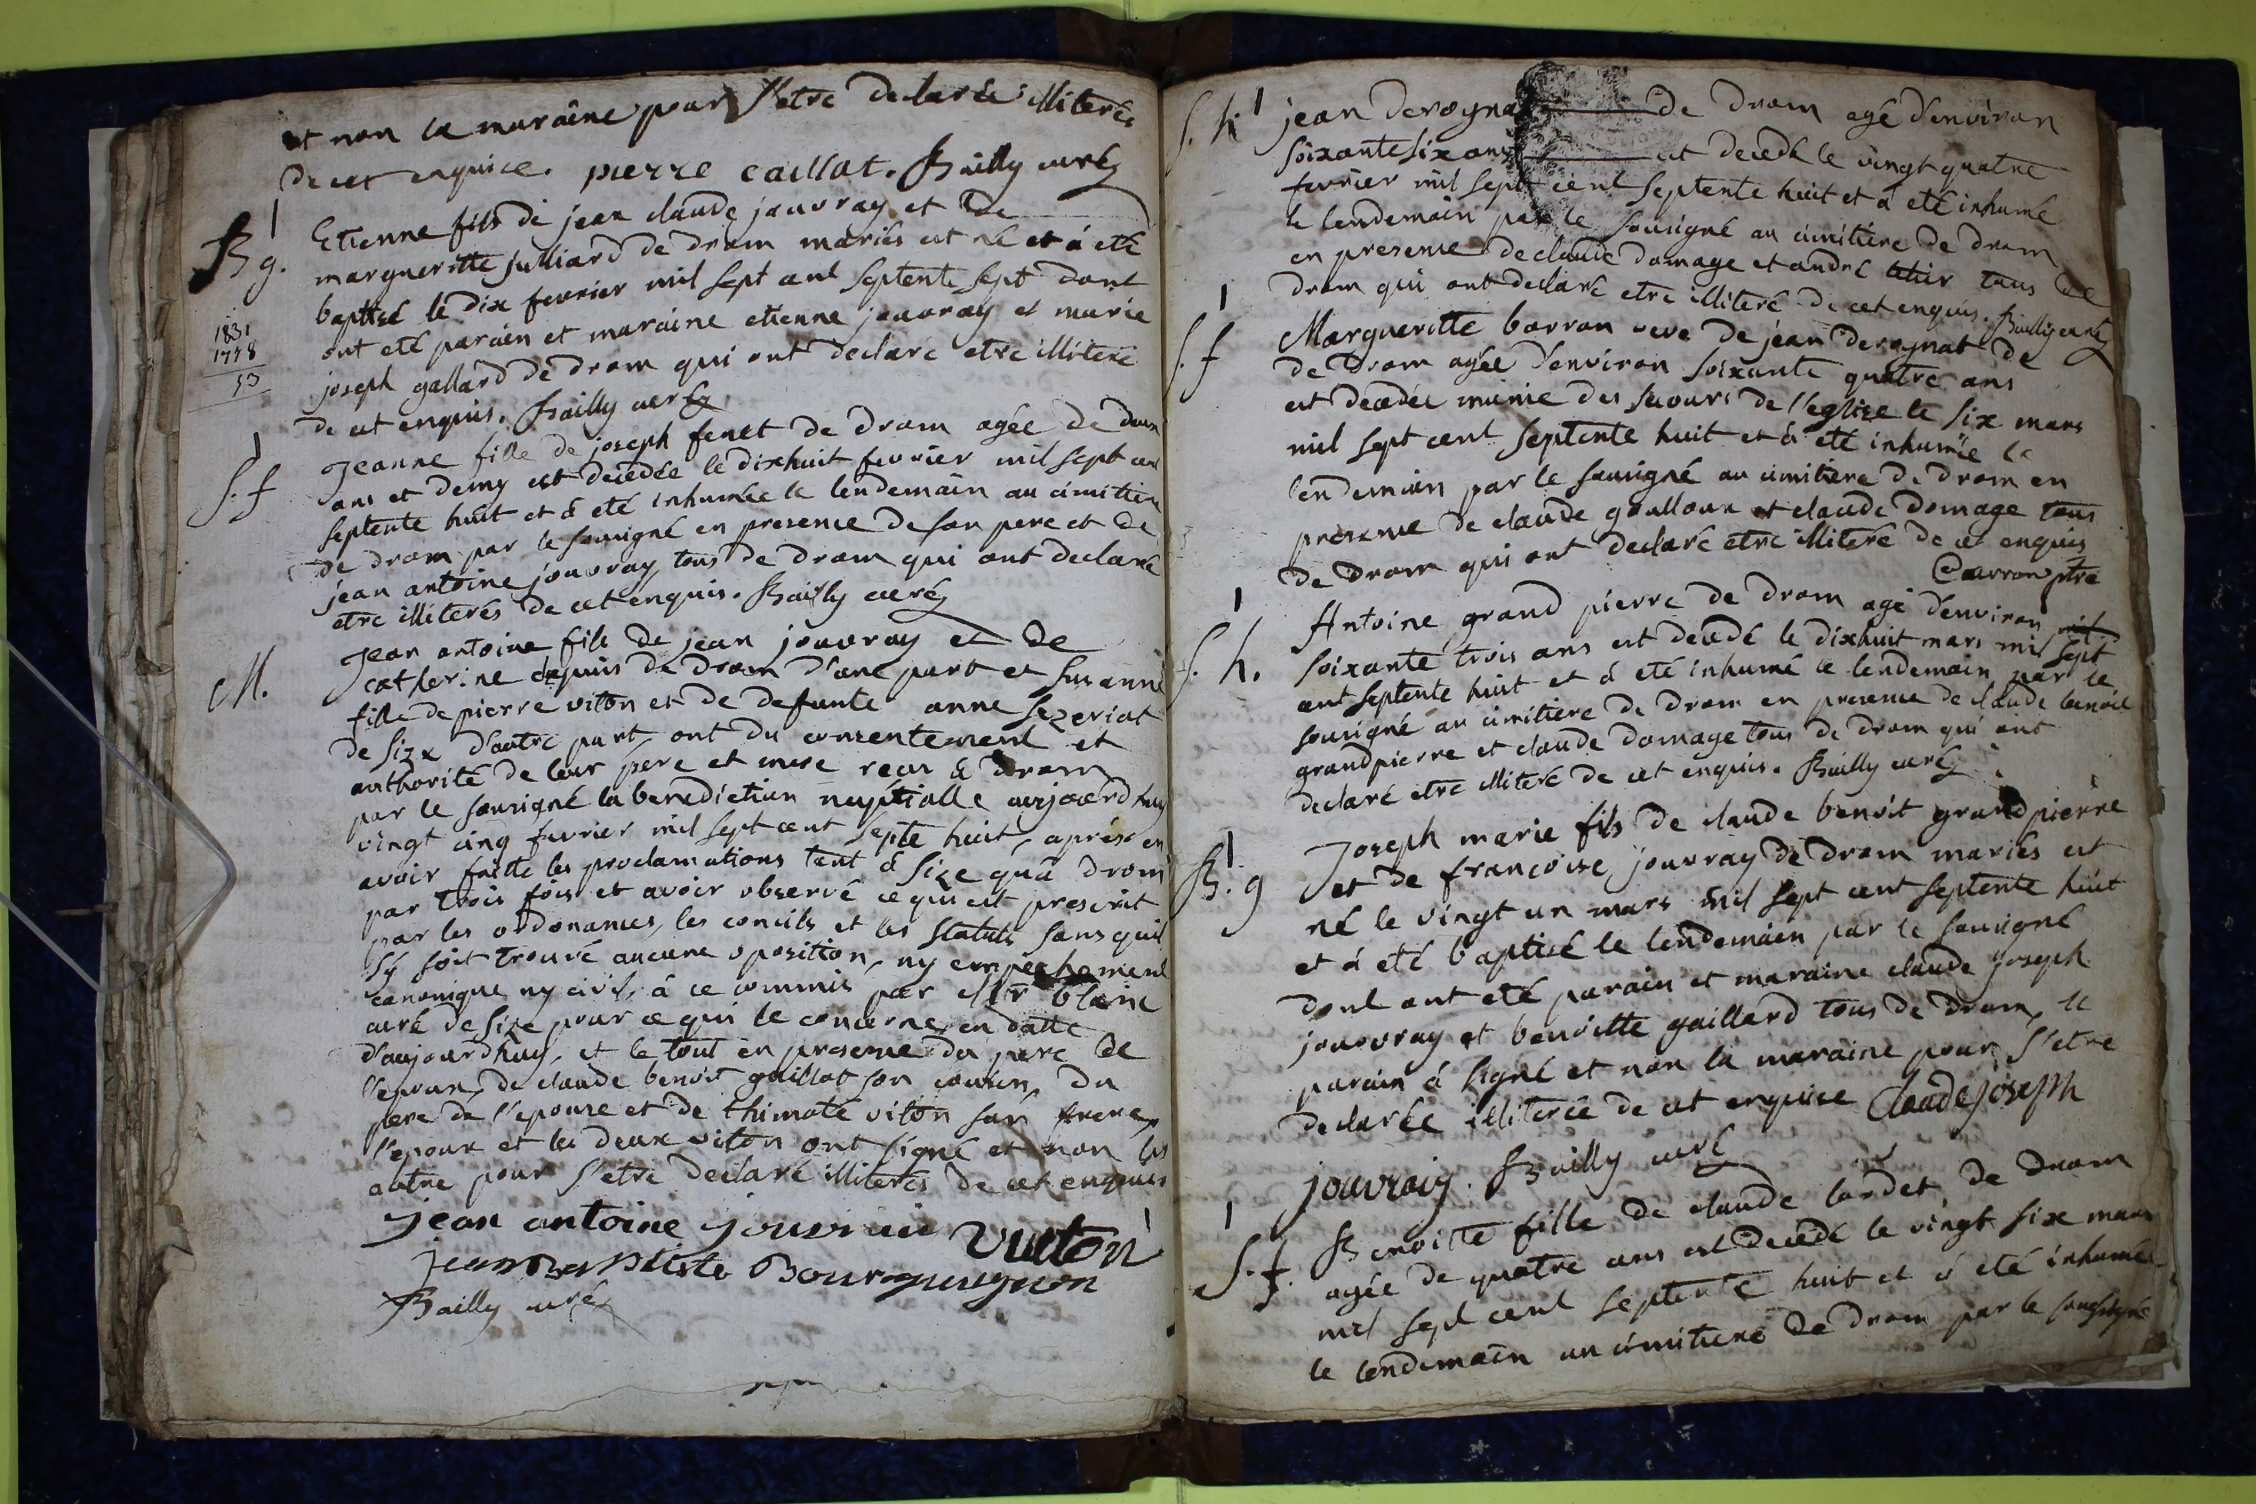 et non la maraine pour s'etre declarée illiterée
de cet enquise. pierre caillat. Bailly curé
B g.
Etienne fils de jean claude jouvray et de
margueritte julliard de drom mariés est né et à eté
baptisé le dix fevrier mil sept cent septente sept dont
1831
1778
53
ont eté parain et maraine etienne jouvray et marie
joseph gallard de drom qui ont declaré etre illiteré
de cet enquis. Bailly curé
S. f
Jeanne fille de joseph fenet de drom agée de deux
ans et demy est decedée le dixhuit fevrier mil sept cent
septente huit et à eté inhumée le lendemain au cimitiere
de drom par le sousigné en presence de son pere et de
jean antoine jouvray tous de drom qui ont declaré
etre illiterés de cet enquis. Bailly curé
M.
Jean antoine fils de jean jouvray et de
catherine depuis de drom d'une part et suzanne
fille de pierre viton et de defunte anne sezeriat
de size d'autre part, ont du consentement et
authorité de leur pere et mere reçu à drom
par le sousigné la benediction nuptialle aujourdhuy
vingt cinq fevrier mil sept cent septe huit, après en
avoir faitte les proclamations tant à size qu'à drom
par trois fois et avoir observé ce qui est prescrit
par les ordonances, les concils et les statuts sans quil
sy soit trouvé aucune oposition, ny empechement
canonique ny civil, à ce commis par Mr blanc
curé de size pour ce qui le concerne, en datte
d'aujourdhuy, et le tout en presence du pere de
l'epoux, de claude benoit guillot son cousin, du
pere de l'epouse et de thimoté viton son frere,
l'epoux et les deux viton ont signé et non les
autre pour s'etre declaré illiterés de cet enquis
jean antoine jouvrai Vuiton
jean Baptiste Bourguignon
Bailly curé
S. h
jean derognat de drom agé d'environ
soixante six ans est decedé le vingt quatre
fevrier mil sept cent septente huit et à eté inhumé
le lendemain par le sousigné au cimitiere de drom
en presence de claude domage et andré tous de
drom qui ont declaré etre illiteré de cet enquis. Bailly curé
S. f
Margueritte borron veve de jean derognat de
de drom agée d'environ soixante quatre ans
est decedée munie des secours de l'eglise le six mars
mil sept cent septente huit et à eté inhumée le
lendemain par le sousigné au cimitiere de drom en
presence de claude goulloux et claude domage tous
de drom qui ont declaré etre illiteré de cet enquis
Cavron ptre
S. h.
Antoine grand pierre de drom agé d'environ
soixante trois ans est decedé le dixhuit mars mil sept
cent septente huit et à eté inhumé le lendemain par le
sousigné au cimitiere de drom en presence de claude benoit
grandpierre et claude domage tous de drom qui ont
declaré etre illiteré de cet enquis. Bailly curé
B. g
Joseph marie fils de claude benoit grandpierre
et de francoise jouvray de drom mariés est
né le vingt un mars mil sept cent septente huit
et à eté baptisé le lendemain par le sousigné
dont ont eté parain et maraine claude joseph
jouvray et benoitte gaillard tous de drom, le
parain à signé et non la maraine pour s'etre
declarée illiterée de cet enquise Claude joseph
jouvraiy. Bailly curé
S. f.
Benoitte fille de claude lardet, de drom
agée de quatre ans est decedé le vingt six mars
mil sept cent septente huit et à eté inhumée
le lendemain au cimitiere de drom par le sousigné